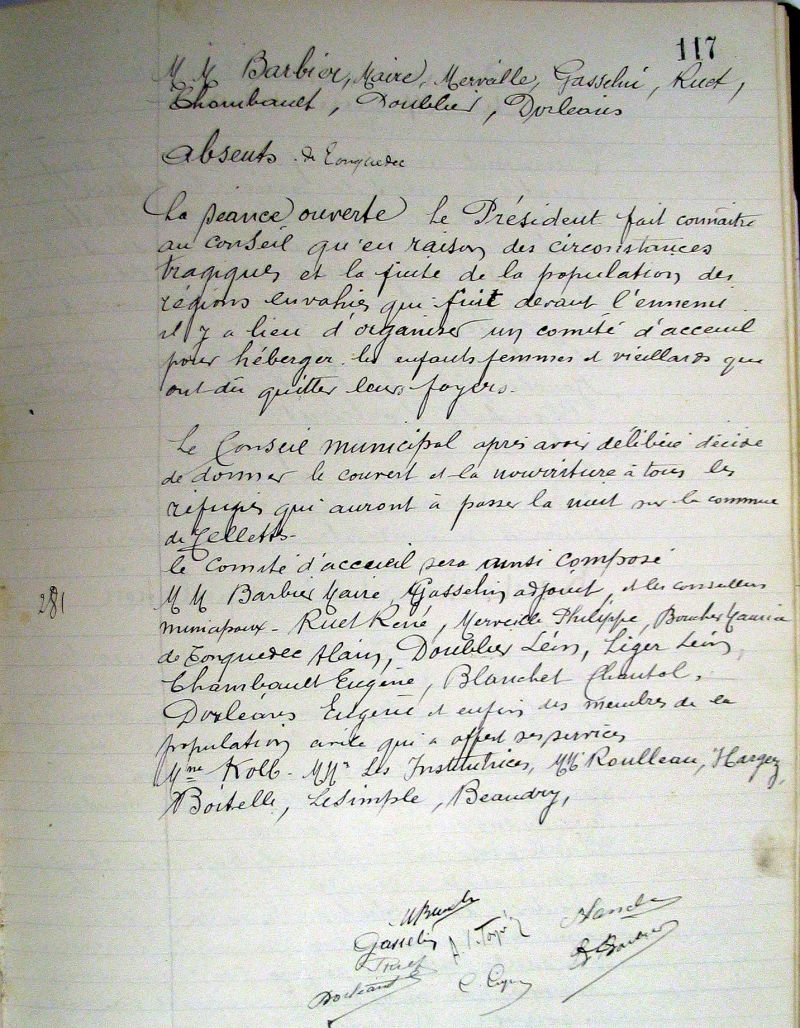 117
M M Barbier, Maire, Merveille, Gasselin, Ruet,
Chambault, Doublier, Dorléans
Absents . de Tonquedec
La séance ouverte le Président fait connaître
au conseil qu'en raison des circonstances
tragiques et la fuite de la population des
régions envahies qui fuit devant l'ennemi
il y a lieu d'organiser un comité d'acceuil
pour héberger les enfants femmes et vieillards qui
ont dû quitter leurs foyers.
Le Conseil municipal après avoir délibéré décide
de donner le couvert et la nourriture à tous les
réfugiés qui auront à passer la nuit sur la commune
de Cellettes.
le Comité d'accueil sera ainsi composé
281
M M Barbier Maire, Gasselin adjoint, et les conseillers
municipaux - Ruet René, Merveille Philippe, Boucher Maurice
de Tonquedec Alain, Doublier Léon, Liger Léon,
Chambault Eugène, Blanchet Chantol,
Dorléans Eugène et enfin des membres de la
population civile qui a offert ses services
Mme Kolb - MMes Les Institutrices, MM Roulleau, Hargez,
Boitelle, Lesimple, Beaudry,
Gasselin
Ruet
Dorléans
Barbier